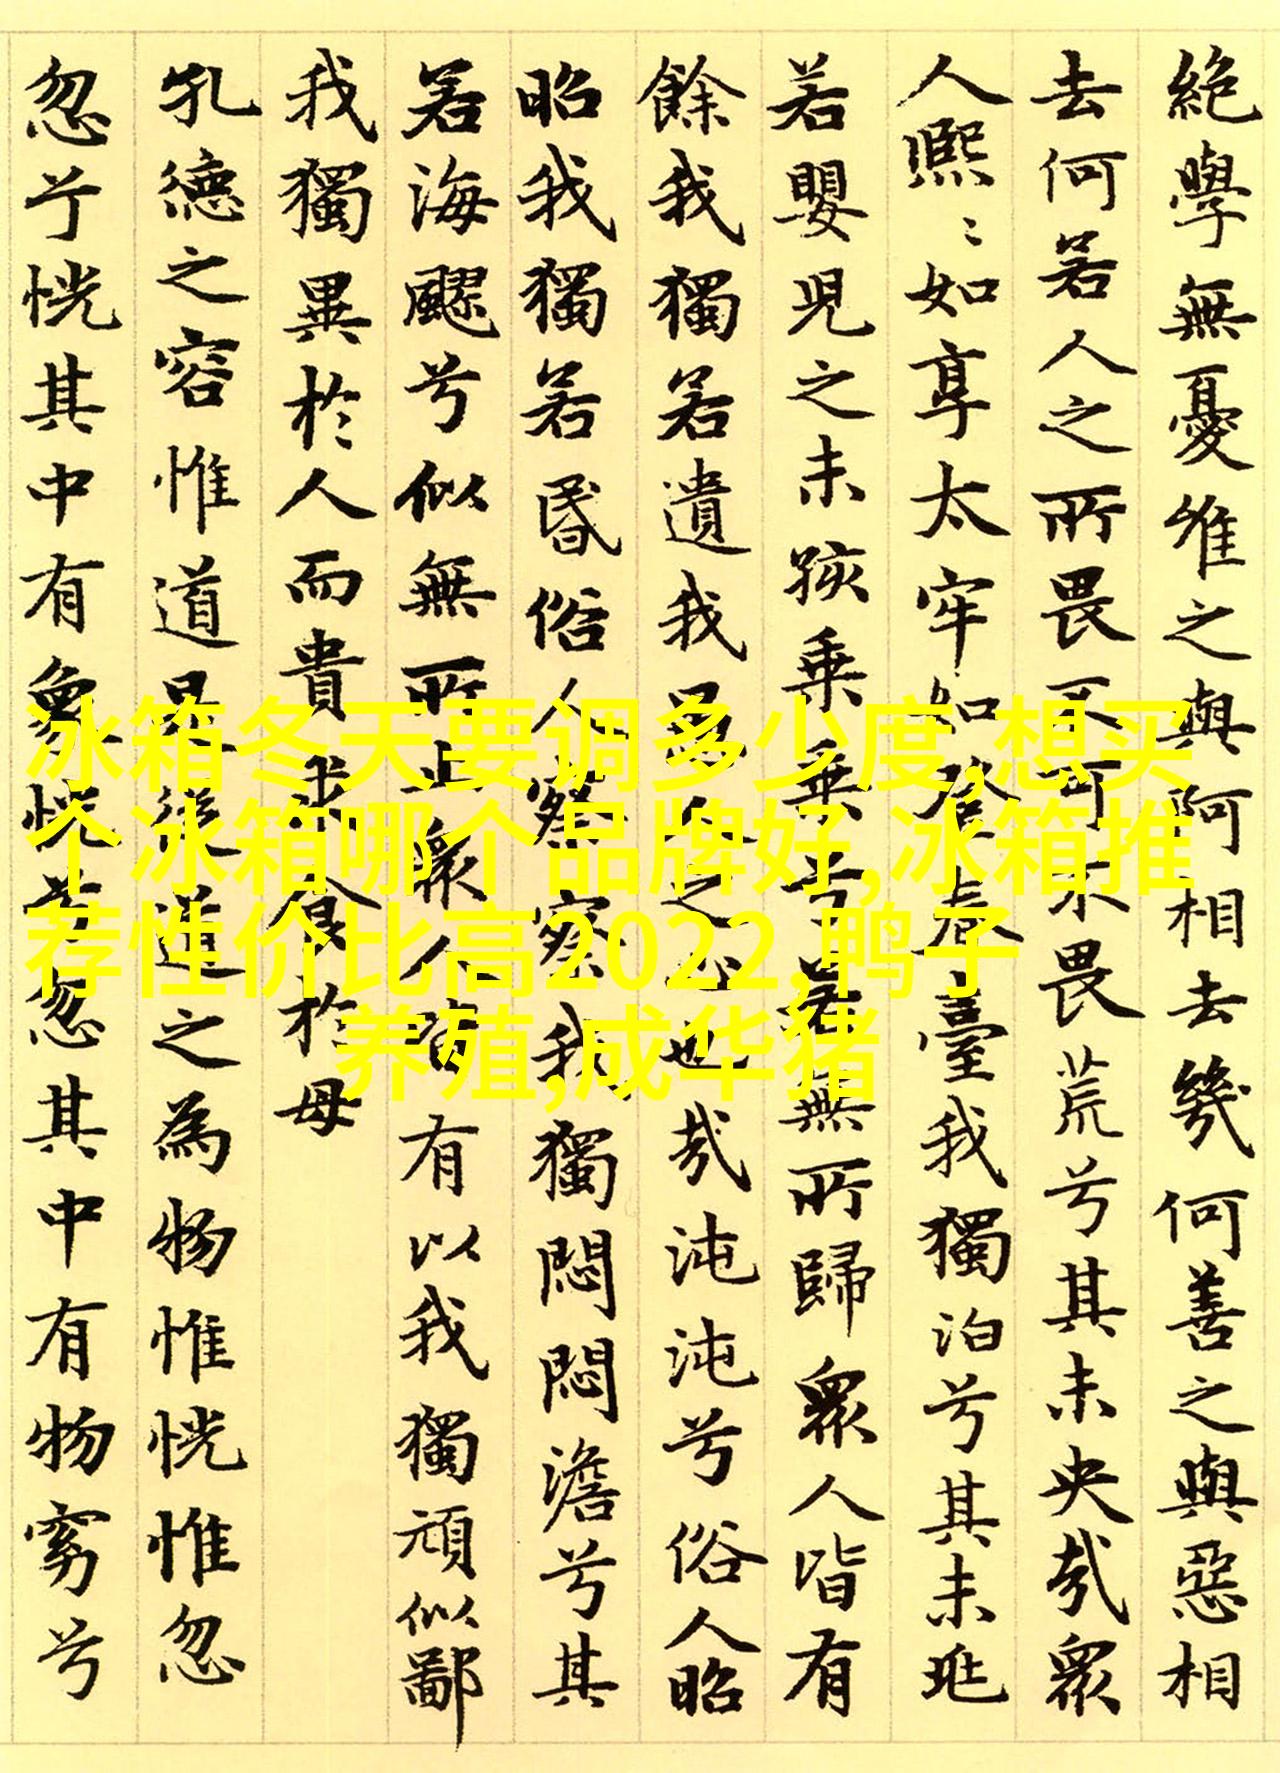 絶學無憂唯之與阿相去幾何善之與惡相
去何若人之所畏不可不畏荒兮其未央哉眾
人熙〻如享太牢如登春臺我獨泊兮其未兆
若嬰兒之未孩乗乗兮若無所歸眾人皆有
餘我獨若遺我愚人之心也哉沌沌兮俗人昭
昭我獨若昬俗人察察我獨悶悶澹兮其
若海飂兮似無所止眾人皆有以我獨頑似鄙
我獨異於人而貴求食於母
孔德之容惟道是從道之為物惟恍惟忽
忽兮恍其中有象恍兮忽其中有物窈兮
冰箱冬天要调多少度,想买
个冰箱哪个品牌好,冰箱推
荐性价比高2022,鸭子
养殖,成华猪